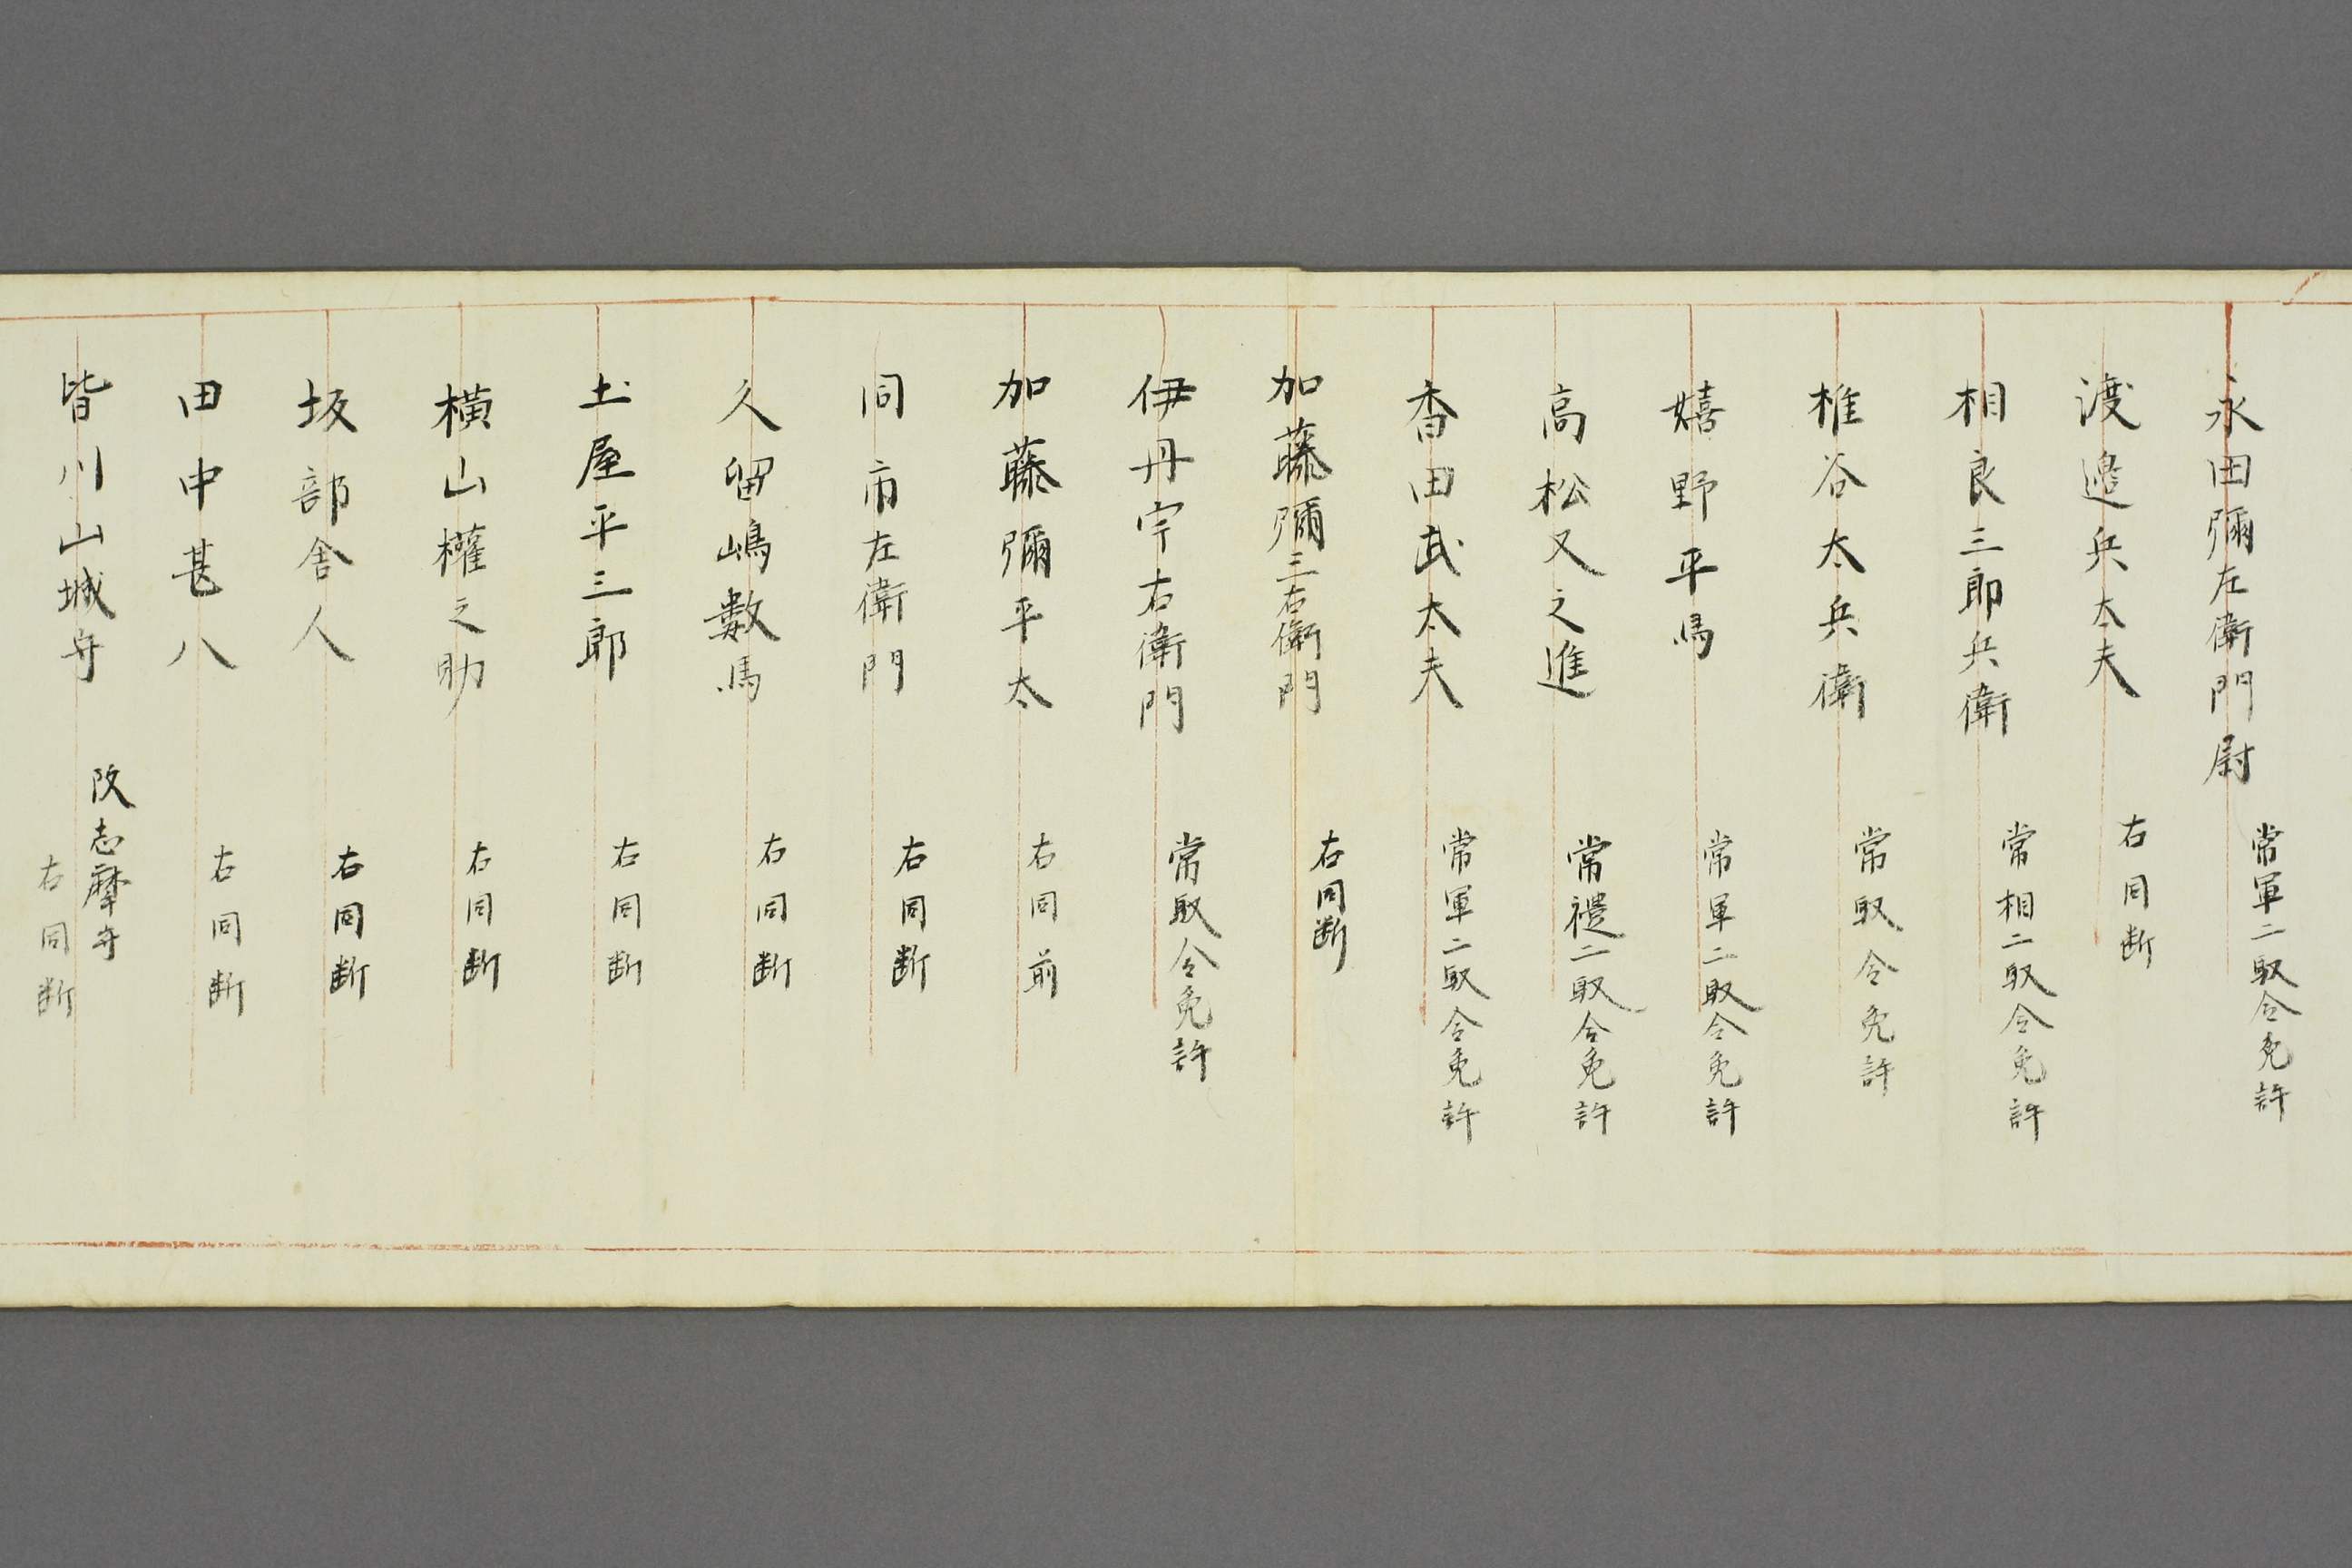 永田彌左衛門尉
常軍二馭令免許
渡邉兵太夫
右同断
相良三郎兵衛
常相二馭令免許
椎谷太兵衛
常馭令免許
嬉野平馬
常軍二馭令免許
高松又之進
常禮二馭令免許
香田武太夫
常軍二馭令免許
加藤彌三右衛門
右同断
伊丹宇右衛門
常馭令免許
加藤彌平太
右同前
同市左衛門
右同断
久留嶋數馬
右同断
土屋平三郎
右同断
横山權之助
右同断
坂部舎人
右同断
田中甚八
右同断
皆川山城守
改志摩守
右同断